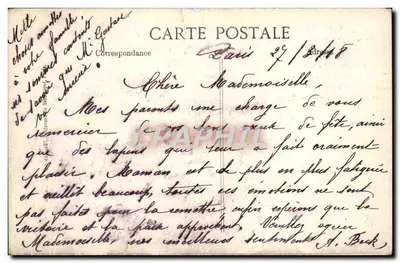 CARTE POSTALE
Correspondance
Paris 27/8/18
Chère Mademoiselle,
Mes parents me charge de vous
remercier de vos bons vœux de fête, ainsi
que des lapins que leur a fait vraiment
plaisir. Maman est de plus en plus fatiguée
et vieillit beaucoup, toutes ces émotions ne sont
pas faites pour la remettre enfin espérons que la
victoire et la paix approchent. Veuillez agréer
Mademoiselle, nos meilleurs sentiments A.
Mille
choses aimables
à votre famille,
de santé que Mr Gustave